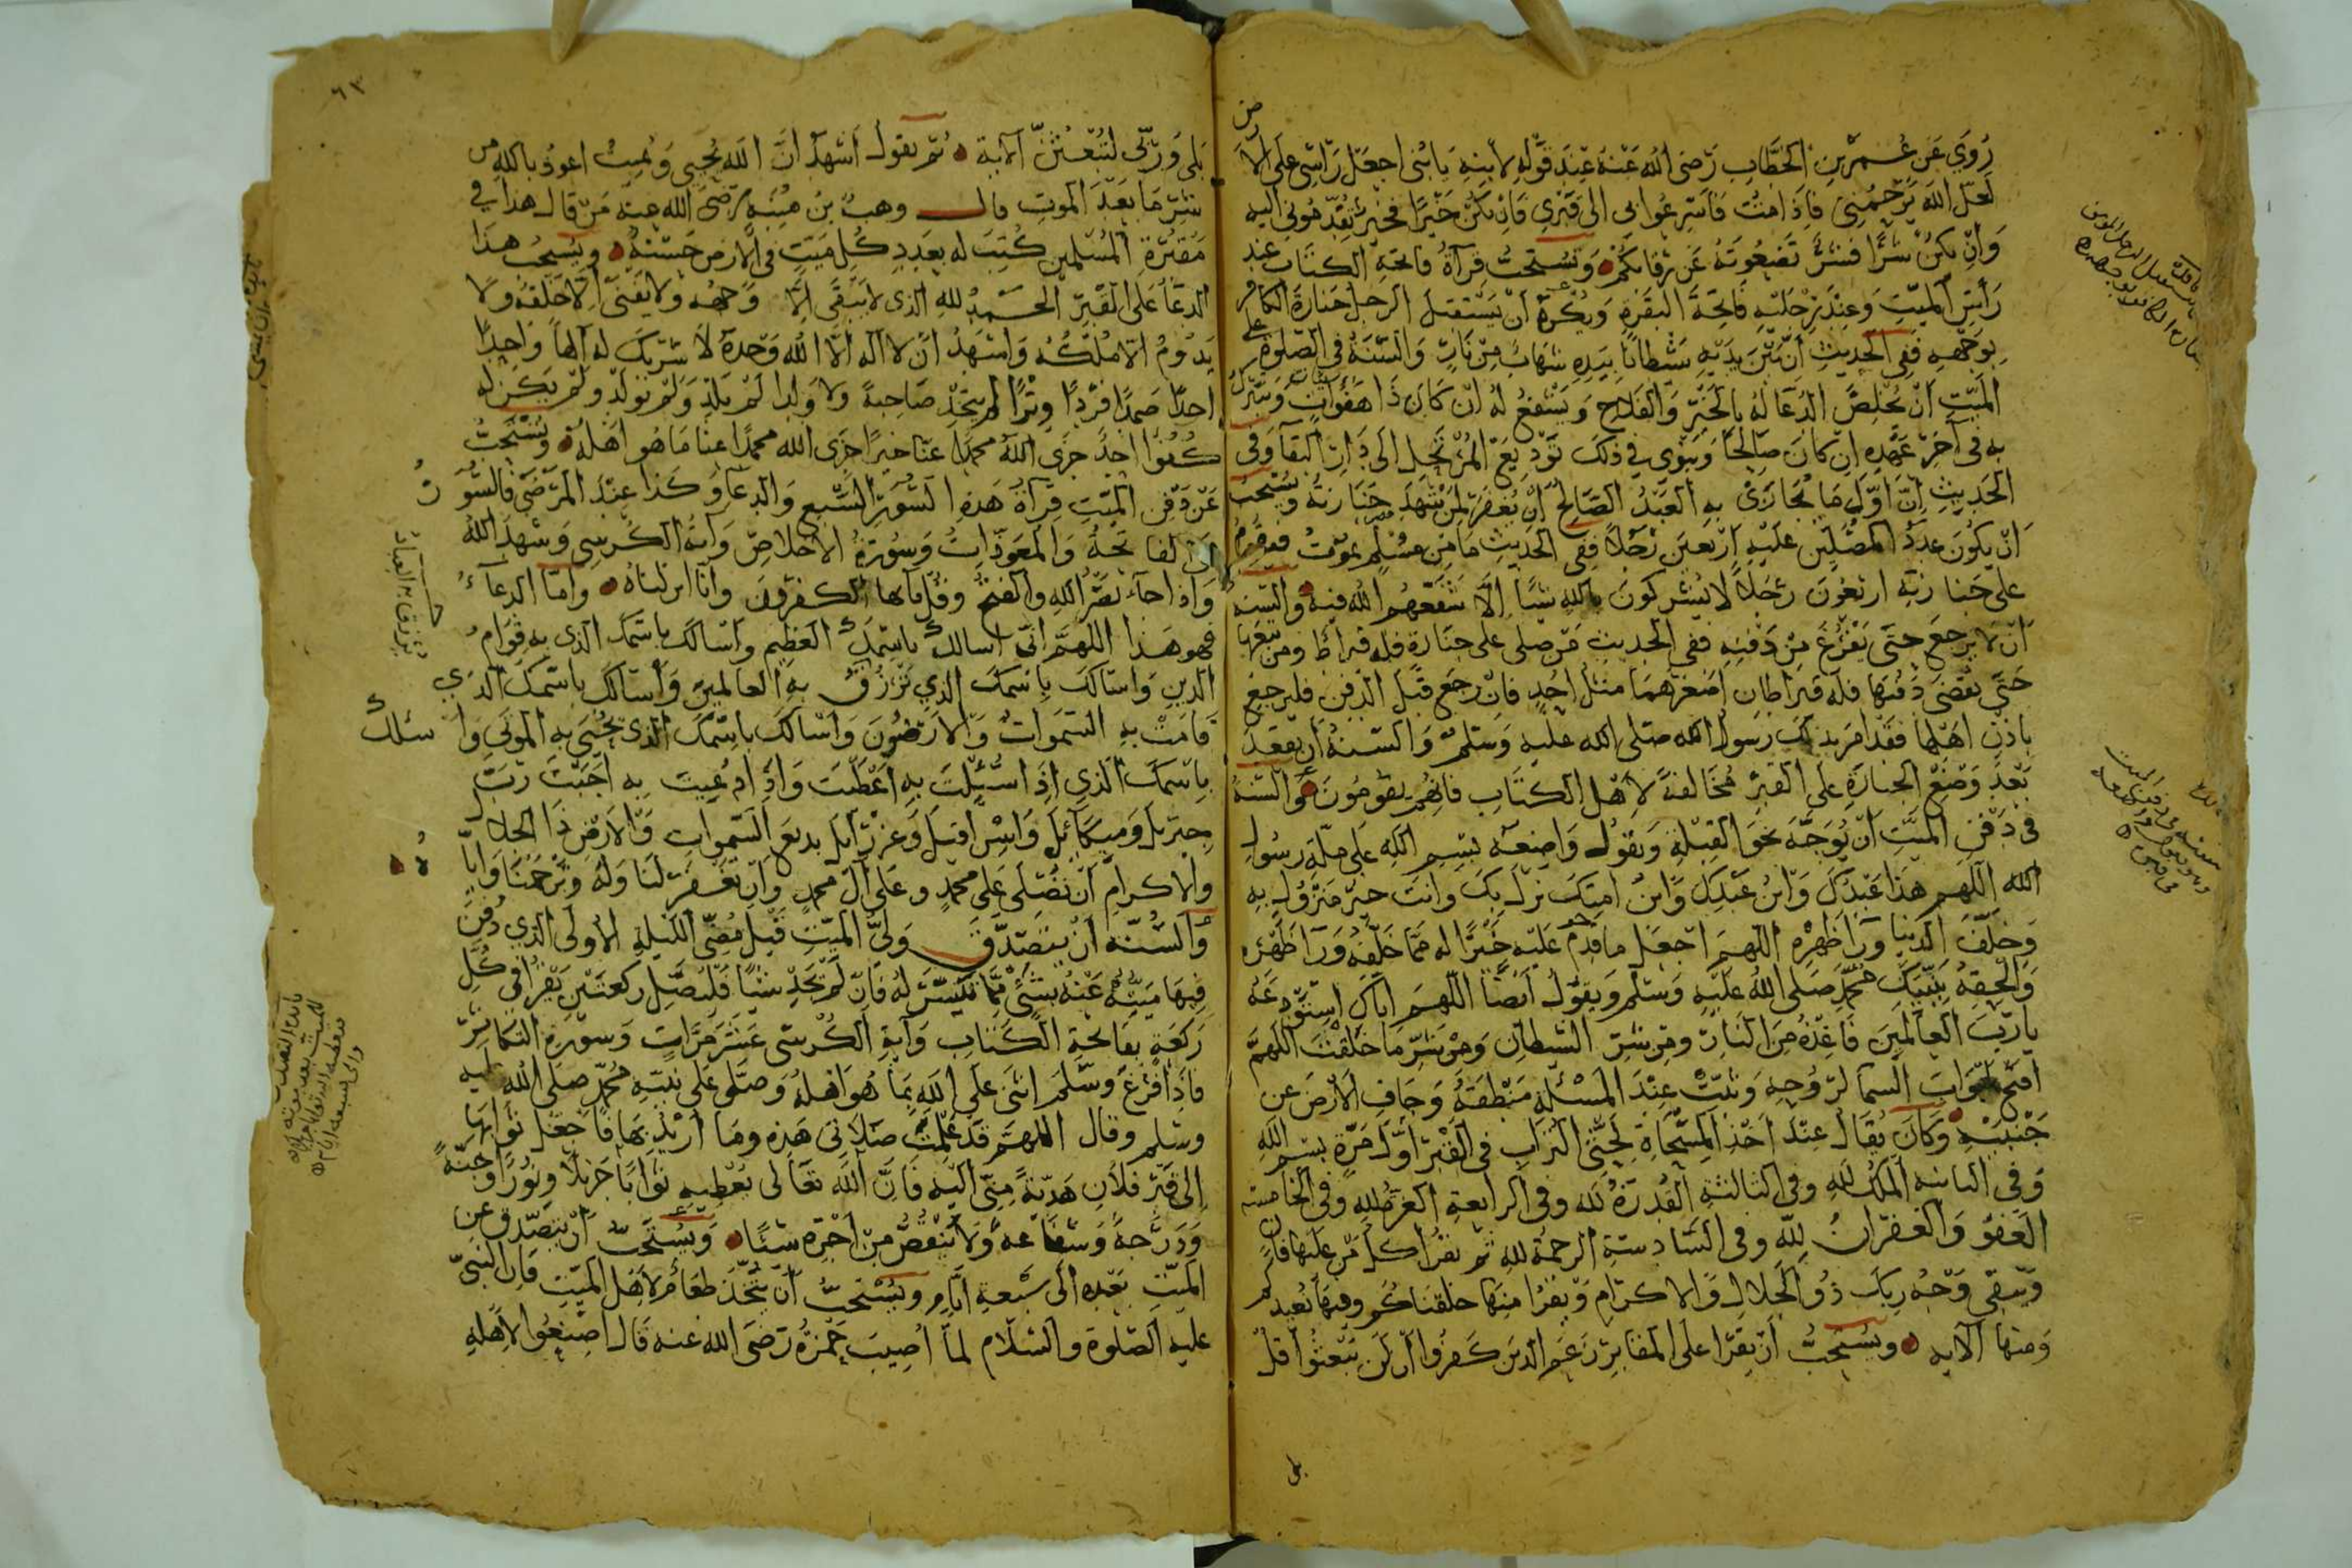 روي عن عمر بن الخطاب رضى الله عنه عند قوله لابنه يا بنى اجعل راسى على الارض
لعل الله يرحمنى فاذا مت فاسرعوا بى الى قبرى فان يكن خيرا فخير تقدمونى اليه
وان يكن شرا فشر تضعونه عن رقابكم وتستحب قرآة فاتحة الكتاب عند
راس الميت وعند رجليه فاتحة البقرة ويكره ان يستقبل الرجل جنازة الكافر
بوجهه ففى الحديث ان بين يديه شطانا بيده شهاب من نار والسنة فى الصلوة على
الميت ان يخلص الدعا له بالخير والفلاح ويشفع له ان كان ذا هفوات ويتبرك
به فى آخر عهده ان كان صالحا وينوى فى ذلك توديع المرتحل الى دار البقا وفى
الحديث ان اول ما يجازى به العبد الصالح ان يغفر لمن شهد جنازته ويستحب
ان يكون عدد المصلين عليه اربعين رجلا ففى الحديث ما من مسلم يموت فيقوم
على جنازته اربعون رجلا لا يشركون بالله شيا الا شفعهم الله فيه والسنة
ان لا يرجع حتى يفرغ من دفنه ففى الحديث من صلى على جنازة فله قيراط ومن تبعها
حتى يقضى دفنها فله قيراطان اصغرهما مثل احد فان رجع قبل الدفن فليرجع
باذن اهلها فقد امر بذلك رسول الله صلى الله عليه وسلم والسنة ان يقعد
بعد وضع الجنازة على القبر مخالفة لاهل الكتاب فانهم يقومون والسنة
فى دفن الميت ان يوجه نحو القبلة ويقول واضعه بسم الله على ملة رسول
الله اللهم هذا عبدك وابن عبدك وابن امتك نزل بك وانت خير منزول به
وخلف الدنيا ورا ظهره اللهم اجعل ما قدم عليه خيرا له مما خلفه ورا ظهره
والحقه بنبيك محمد صلى الله عليه وسلم ويقول ايضا اللهم اياك استودعه
يا رب العالمين فاعذه من النار ومن شر الشطان ومن شر ما خلقت اللهم
افتح ابواب السما لروحه وثبت عند المسئلة منطقه وجاف الارض عن
جنبيه وكان يقال عند اخذ المسحاة لحثى التراب فى القبر اول مرة بسم الله
وفى الثانية الملك لله وفى الثالثة القدرة لله وفى الرابعة العزة لله وفى الخامسة
العفو والغفران لله وفى السادسة الرحمة لله ثم يقرا كل من عليها فان
ويبقى وجه ربك ذو الجلال والاكرام ويقرا منها خلقناكم وفيها نعيدكم
ومنها الآية ويستحب ان يقرا على المقابر زعم الذين كفروا ان لن يبعثوا قل
بلى
٦٣
بلى وربى لتبعثن الآية ثم يقول اشهد ان الله يحيى ويميت اعوذ بالله من
شر ما بعد الموت قال وهب بن منبه رضى الله عنه من قال هذا فى
مقبرة المسلمين كتب له بعدد كل ميت فى الارض حسنة ويستحب هذا
الدعا على القبر الحمد لله الذى لا يبقى الا وجهه ولا يفنى الا خلقه ولا
يدوم الا ملكه واشهد ان لا اله الا الله وحده لا شريك له الها واحدا
احدا صمدا فردا وترا لم يتخذ صاحبة ولا ولدا لم يلد ولم يولد ولم يكن له
كفوا احد جزى الله محمدا عنا خيرا جزى الله محمدا عنا ما هو اهله ويستحب
عن دفن الميت قرآة هذه السور السبع والدعا وكذا عند المرضى فالسور
الفاتحة والمعوذات وسورة الاخلاص وآية الكرسى وشهد الله
واذا جاء نصر الله والفتح وقل يا ايها الكفرون وانا انزلناه واما الدعاء
فهو هذا اللهم انى اسالك باسمك العظيم واسالك باسمك الذى به قوام
الدين واسالك باسمك الذي ترزق به العالمين واسالك باسمك الذي
قامت به السموات والارضون واسالك باسمك الذى تحيى به الموتى واسئلك
باسمك الذي اذا سئلت به اعطيت واذا دعيت به اجبت رب
جبريل وميكائيل واسرافيل وعزرائيل بديع السموات والارض ذا الجلال
والاكرام ان تصلى على محمد وعلى آل محمد وان تغفر لنا وله وترحمنا واياه
والسنة ان يتصدق ولى الميت قبل مضى الليلة الاولى الذي دفن
فيها ميته عنه بشئ مما تيسر له فان لم يجد شيا فليصل ركعتين يقرا فى كل
ركعة بفاتحة الكتاب وآية الكرسى عشر مرات وسورة التكاثر
فاذا فرغ وسلم اثنى على الله بما هو اهله وصلى على نبيه محمد صلى الله عليه
وسلم وقال اللهم قد علمت صلاتى هذه وما اريد بها فاجعل ثوابها
الى قبر فلان هدية منى اليه فان الله تعالى يعطيه ثوابا جزيلا ونورا وجنة
ودرجة وشفاعة ولا ينقص من اجره شيئا ويستحب ان يتصدق عن
الميت بعده الى سبعة ايام ويستحب ان يتخذ طعام لاهل الميت فان النبى
عليه الصلوة والسلام لما اصيب حمزة رضى الله عنه قال اصنعوا لاهله